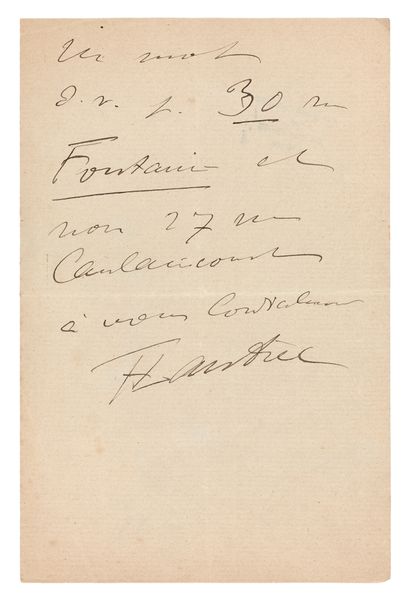 Un mot
s. v. p. 30 rue
Fontaine et
non 27 rue
Caulaincourt
à vous Cordialement
HLautrec